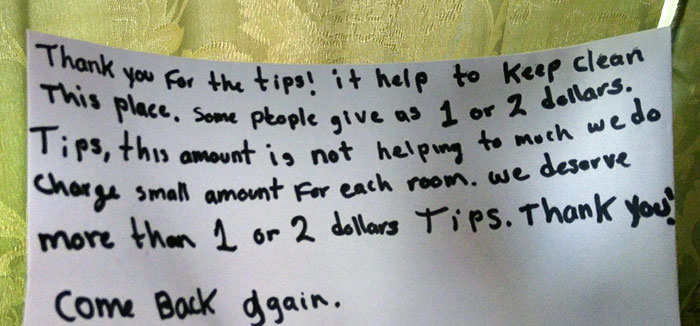 Thank you For the tips! it help to Keep clean
This place. Some people give as 1 or 2 dollars.
Tips, this amount is not helping to much we do
Charge small amount For each room. we deserve
more than 1 or 2 dollars Tips. Thank you!
Come Back again.